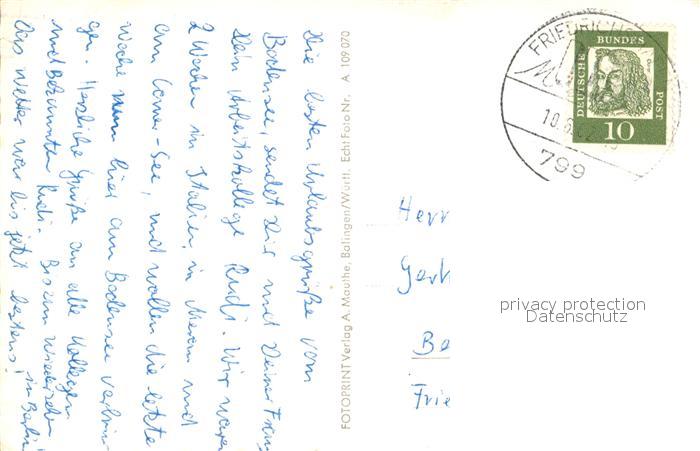 Die besten Urlaubsgrüße vom
Bodensee, sendet Dir und Deiner Frau
Dein Arbeitskollege Rudi. Wir waren
2 Wochen in Italien, in Meran und
am Comer-See, und wollen die letzte
Woche nun hier am Bodensee verbrin-
gen. Herzliche Grüße an alle Kollegen
und Bekannten Rudi. Bis zum Wiedersehen
in Berlin!
Das Wetter war bis jetzt bestens!
FOTOPRINT Verlag A. Mauthe, Balingen/Württ. Echt Foto Nr. A 109 070
FRIEDRICHS
10.6.
799
DEUTSCHE BUNDES POST
10
Herr
Ger
Be
Frie
privacy protection
Datenschutz